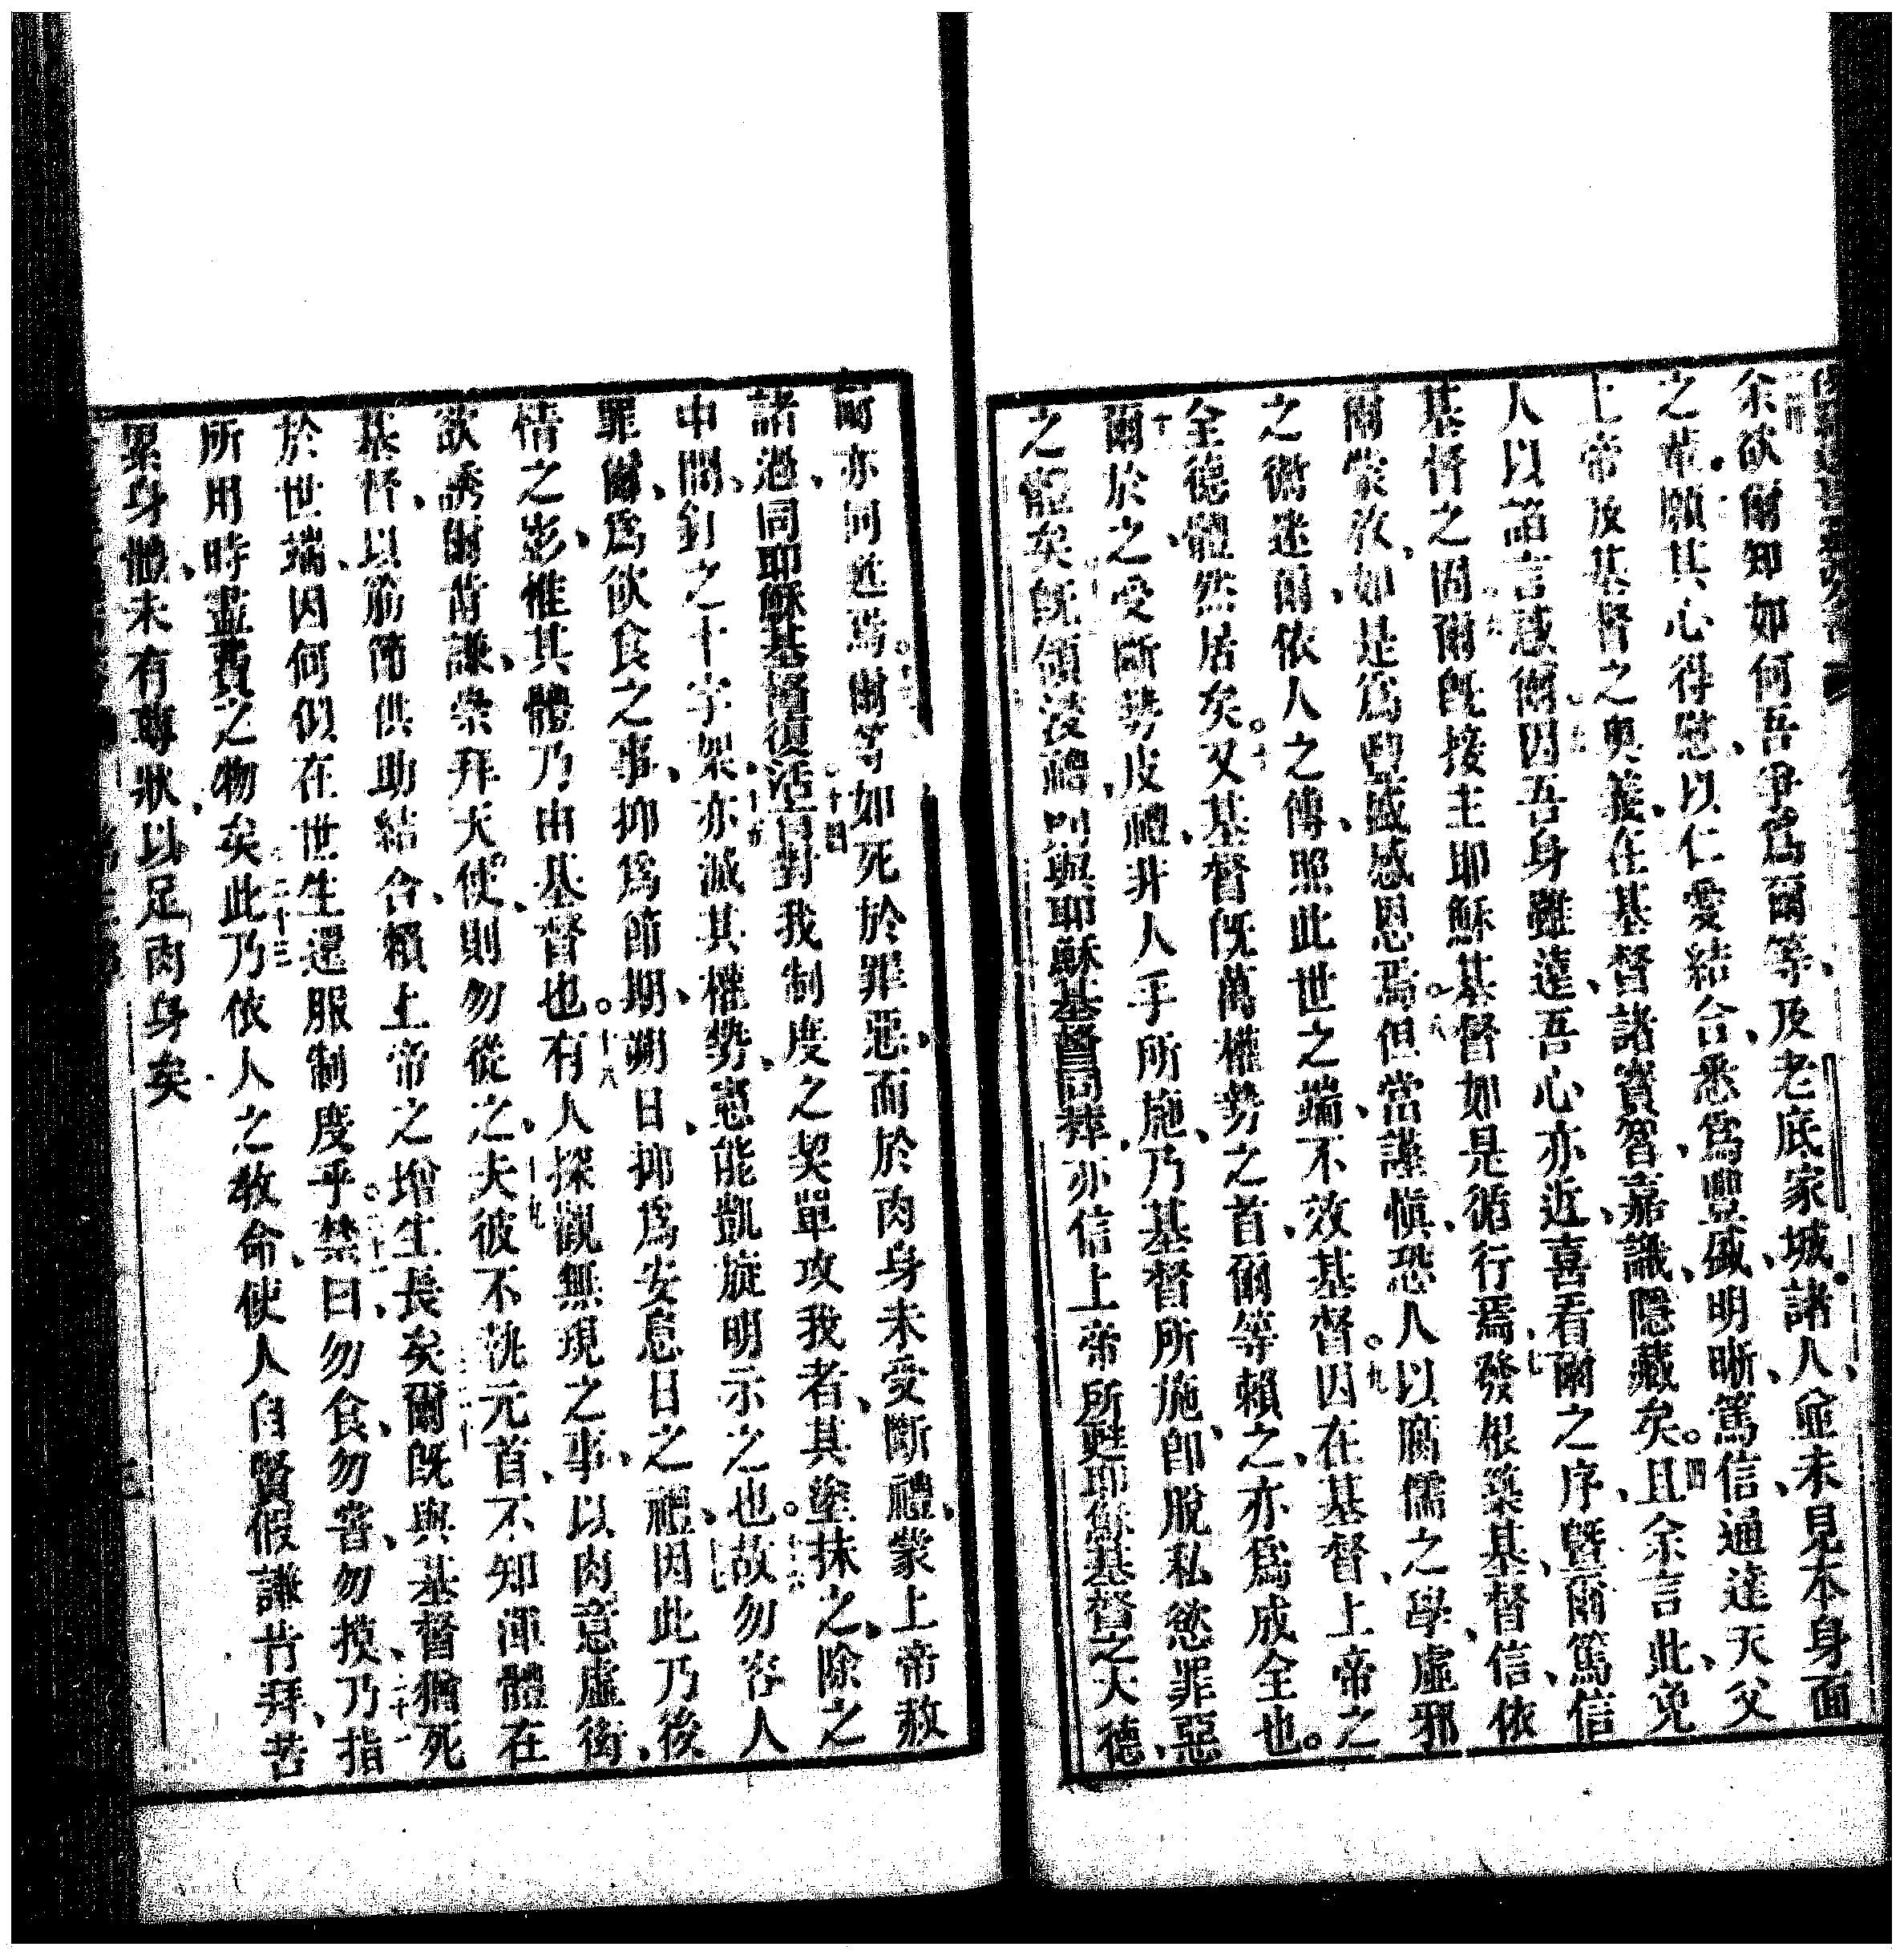 余欲爾知如何吾爭爲爾等、及老底家城諸人、並未見本身面
之輩。願其心得慰、以仁愛結合、悉爲豐盛、明晰、篤信、通達天父
上帝及基督之奧義、在基督諸寶智、嘉識、隱藏矣。四且余言此、免
人以諂言惑爾因吾身雖遠、吾心亦近、喜看爾之序、曁爾篤信
基督之固爾既接主耶穌基督如是循行焉、七發根築基、督信、依
爾蒙敎、如是爲豐盛感恩焉。八但當謹愼、恐人以腐儒之學、虛邪
之術迷爾、依人之傳、照此世之端、不效基督。九因在基督、上帝之
全德體然居矣。十又基督既萬權勢之首、爾等賴之、亦爲成全也。
爾於之、受斷勢皮禮、非人手所施、乃基督所施、卽脫私慾罪惡
之體矣既領浸禮、則與耶穌基督同葬、亦信上帝所甦耶穌基督之大德、
爾亦同甦焉。爾等如死於罪惡、而於肉身未受斷禮、蒙上帝赦
諸過、同耶穌基督復活十四且對我制度之契單攻我者、其塗抹之、除之
中間、釘之十字架、十五亦滅其權勢、憲能凱旋明示之也。十六故勿容人
罪爾、爲飲食之事、抑爲節期、朔日、抑爲安息日之禮、十七因此乃後
情之影、惟其體乃由基督也。十八有人探觀無現之事、以肉意虛衒、
欲誘爾背謙、崇拜天使、則勿從之、十九夫彼不執元首、不知渾體在
基督、以筋節供助結合、賴上帝之增生長矣二十爾既與基督猶死
於世端、因何似在世生還服制度乎。二十一禁曰、勿食、勿嘗、勿摸、二十二乃指
所用時盡費之物矣二十三此乃依人之敎命、使人自賢假謙肯拜、苦
累身體、未有尊狀、以足肉身矣